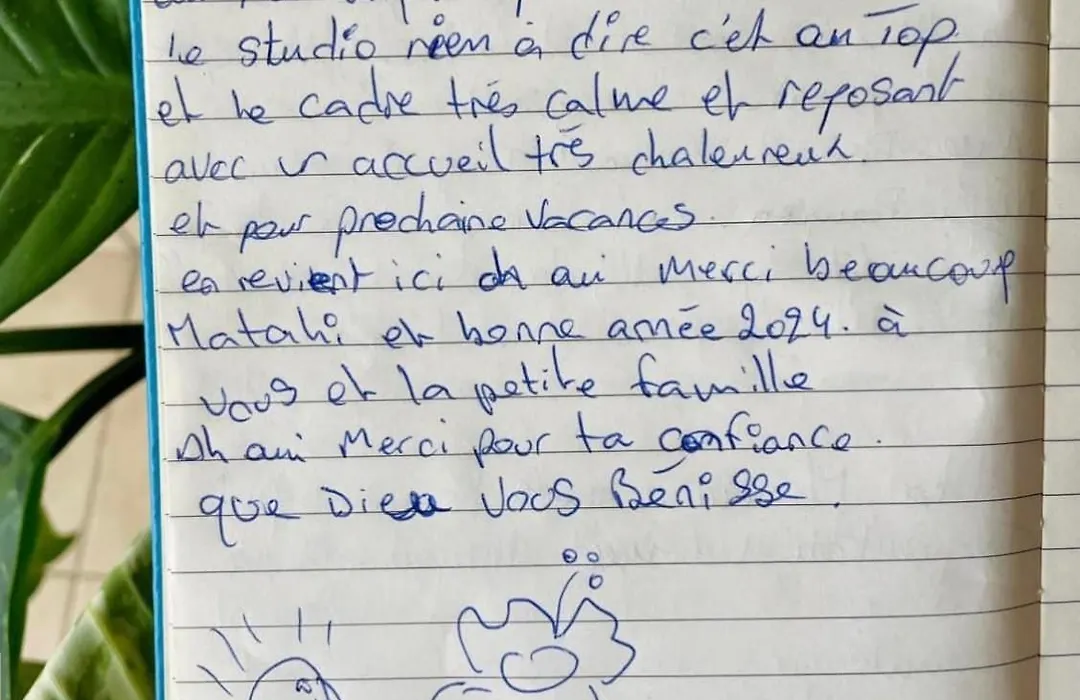 Le studio rien à dire c'et au Top
et le cadre très calme et reposant
avec un accueil très chaleureux.
et pour prochaine vacances.
en revient ici oh oui Merci beaucoup
Matahi et bonne année 2024. à
vous et la petite famille
Oh oui Merci pour ta confiance.
que Dieu vous Bénisse.